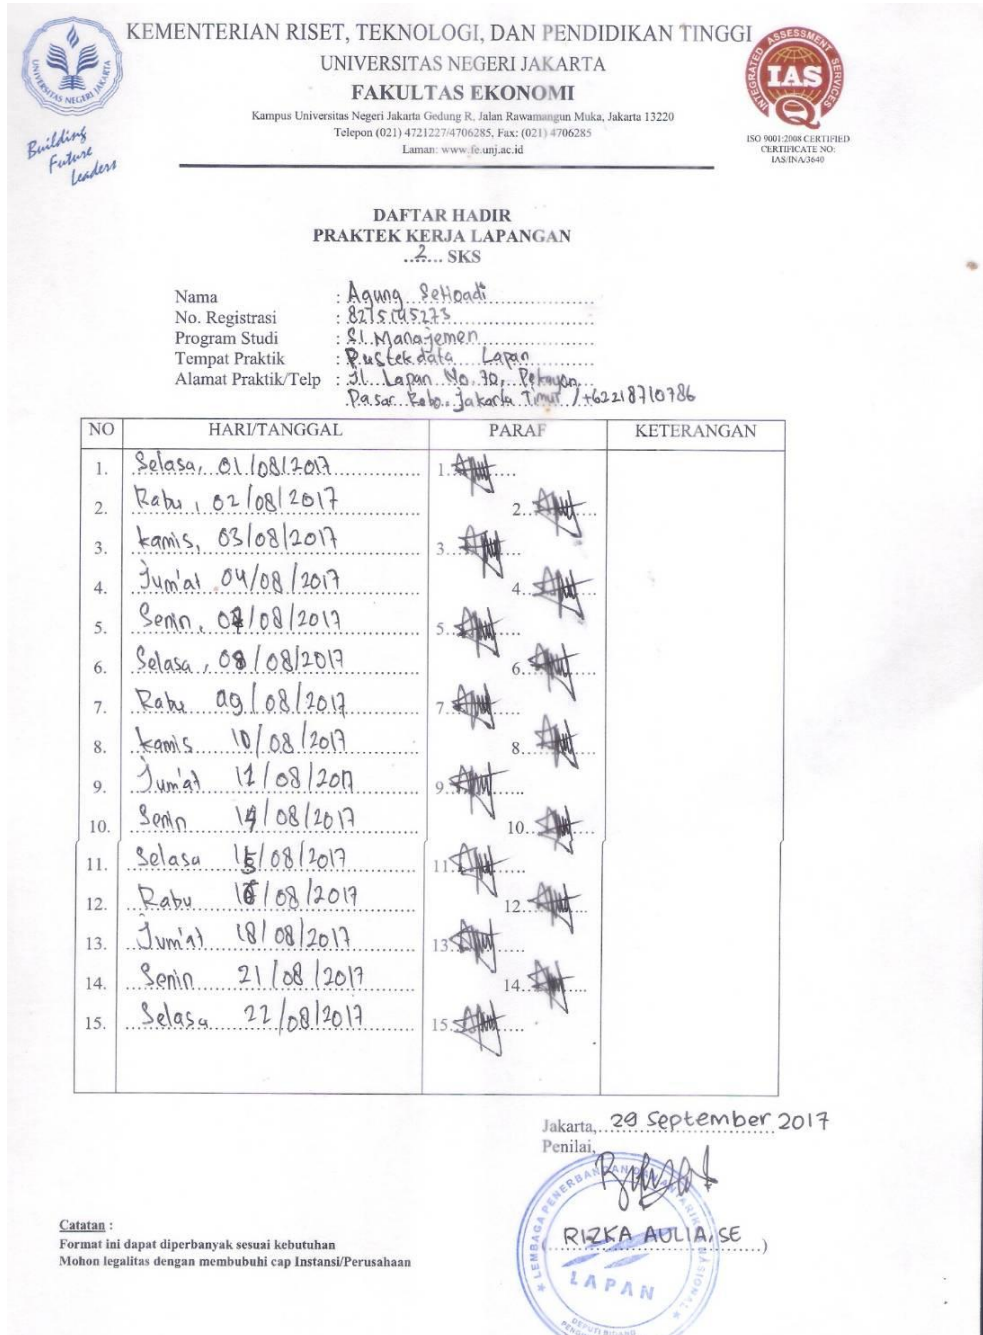 KEMENTERIAN RISET, TEKNOLOGI, DAN PENDIDIKAN TINGGI
UNIVERSITAS NEGERI JAKARTA
FAKULTAS EKONOMI
Kampus Universitas Negeri Jakarta Gedung R, Jalan Rawamangun Muka, Jakarta 13220
Telepon (021) 4721227/4706285, Fax: (021) 4706285
Laman: www.fe.unj.ac.id
UNIVERSITAS NEGERI JAKARTA
Building
Future
Leaders
INTEGRATED ASSESSMENT SERVICES
IAS
ISO 9001:2008 CERTIFIED
CERTIFICATE NO:
IAS/INA/3640
DAFTAR HADIR
PRAKTEK KERJA LAPANGAN
...2... SKS
Nama : Agung Setioadi
No. Registrasi : 8215145273
Program Studi : S1 Manajemen
Tempat Praktik : Pustekdata Lapan
Alamat Praktik/Telp : Jl. Lapan No. 70, Pekayon
Pasar Rebo, Jakarta Timur /+62218710786
NO HARI/TANGGAL PARAF KETERANGAN
1. Selasa, 01/08/2017 1.
2. Rabu, 02/08/2017 2.
3. Kamis, 03/08/2017 3.
4. Jum'at 04/08/2017 4.
5. Senin, 07/08/2017 5.
6. Selasa, 08/08/2017 6.
7. Rabu 09/08/2017 7.
8. Kamis 10/08/2017 8.
9. Jum'at 11/08/2017 9.
10. Senin 14/08/2017 10.
11. Selasa 15/08/2017 11.
12. Rabu 16/08/2017 12.
13. Jum'at 18/08/2017 13.
14. Senin 21/08/2017 14.
15. Selasa 22/08/2017 15.
Jakarta, 29 September 2017
Penilai,
(RIZKA AULIA, SE)
LEMBAGA PENERBANGAN DAN ANTARIKSA NASIONAL
LAPAN
DEPUTI BIDANG
Catatan :
Format ini dapat diperbanyak sesuai kebutuhan
Mohon legalitas dengan membubuhi cap Instansi/Perusahaan